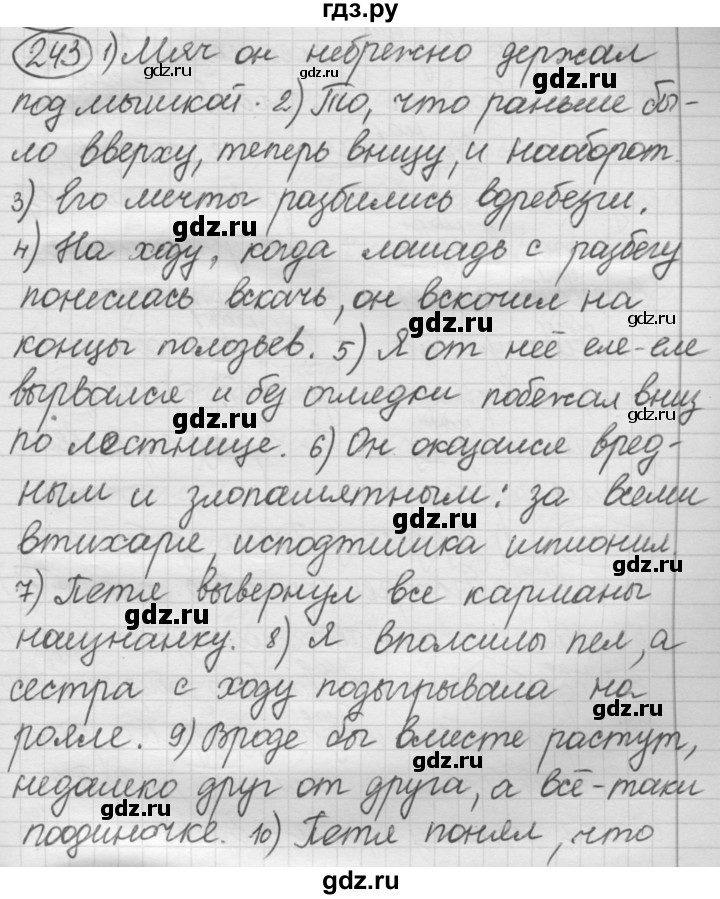 гдз.ру
243 1) Мяч он небрежно держал
gdz.ru gdz.ru
под мышкой. 2) То, что раньше бы-
ло вверху, теперь внизу, и наоборот.
3) Его мечты разбились вдребезги.
gdz.ru
4) На ходу, когда лошадь с разбегу
понеслась вскачь, он вскочил на
gdz.ru gdz.ru
концы полозьев. 5) Я от неё еле-еле
вырвался и без оглядки побежал вниз
gdz.ru gdz.ru
по лестнице. 6) Он оказался вред-
ным и злопамятным: за всеми
gdz.ru
втихаря, исподтишка шпионил.
gdz.ru
7) Петя вывернул все карманы
gdz.ru
наизнанку. 8) Я вполсилы пел, а
сестра с ходу подыгрывала на
gdz.ru
рояле. 9) Вроде бы вместе растут,
gdz.ru
недалеко друг от друга, а всё-таки
gdz.ru
поодиночке. 10) Петя понял, что
gdz.ru